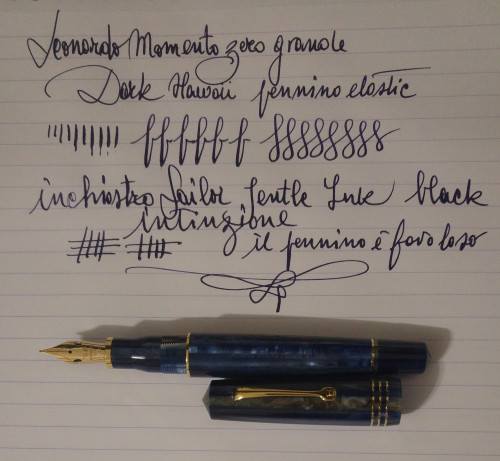 Leonardo Momento zero grande
Dark Hawaii pennino elastic
inchiostro Sailor Gentle Ink black
intinzione
il pennino è favoloso